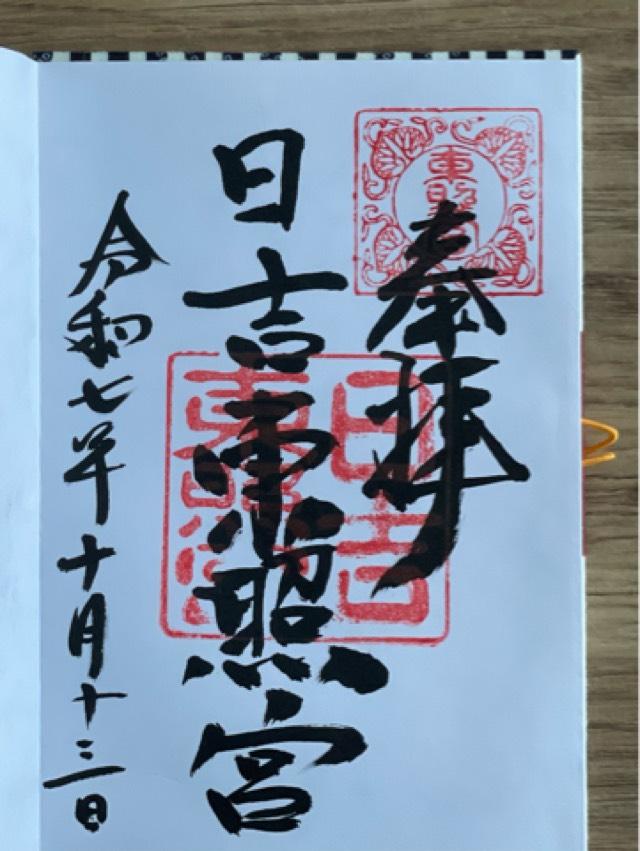 奉拝
日吉東照宮
令和七年十月十三日
東照宮
日吉
東照宮